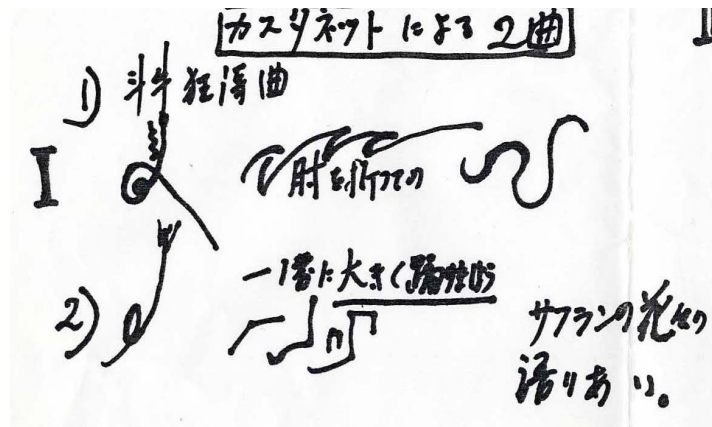 カスタネットによる2曲
1) 狂詩曲
I
肘を折っての
2) 一番に大きく
サフランの花の
語りあい。